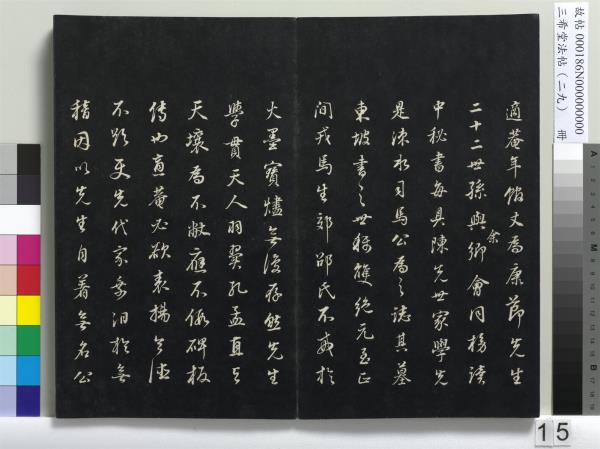 適菴年餙丈為康節先生
二十二世孫與余鄉會同榜讀
中秘書每具陳先世家學先
是涑水司馬公為之誌其墓
東坡書之世稱雙絕元至正
間戎馬生郊邵氏不戒於
火墨寶燼無復存然先生
學貫天人羽翼孔孟直與
天壤為不敝應不假碑板
傳也適菴必欲表揚令德
不訟更先代家乘汨於無
稽因以先生自著無名公
故帖 000186N000000000
三希堂法帖(二九) 冊
15